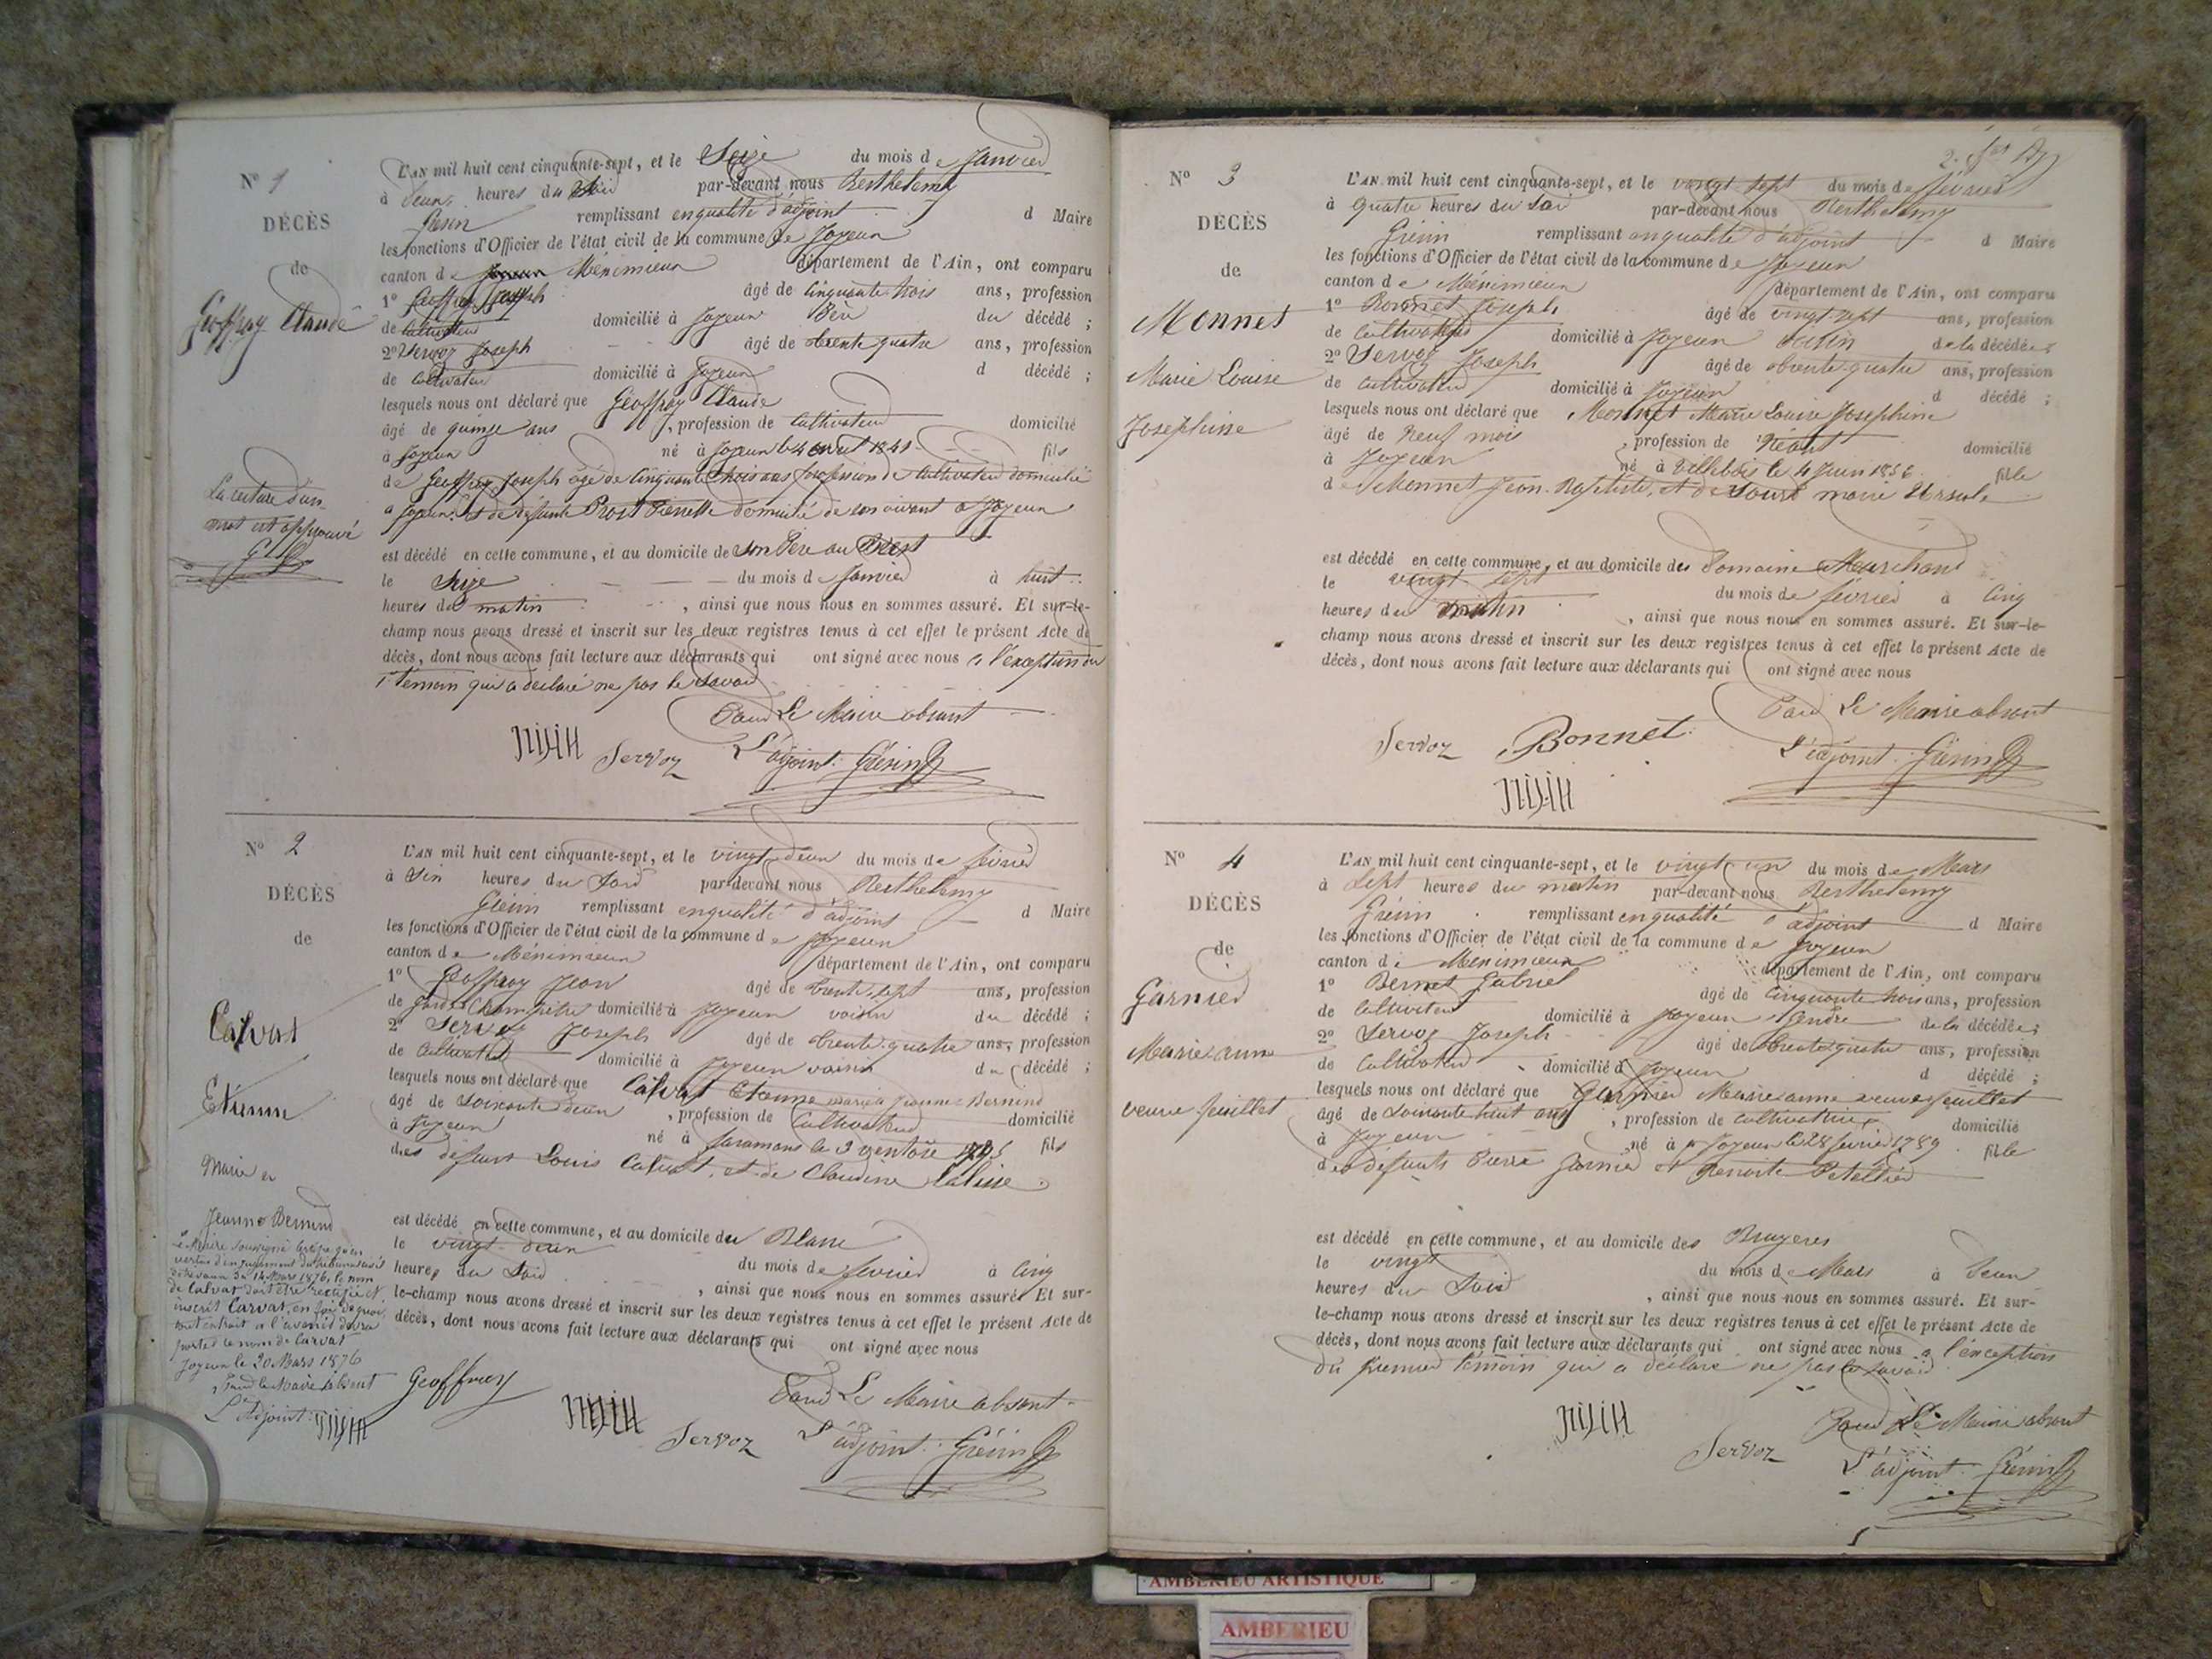 Nº 1
DÉCÈS
de
Geoffray Claude
La rature d'un
mot est approuvé
L'AN mil huit cent cinquante-sept, et le Seize du mois de Janvier
à deux heures du Soir par-devant nous Berthelemy
remplissant en qualité d'adjoint d Maire
les fonctions d'Officier de l'état civil de la commune de Joyeux
canton de Méximieux département de l'Ain, ont comparu
1º Geoffray Joseph âgé de cinquante trois ans, profession
de Cultivateur domicilié à Joyeux Père du décédé ;
2º Servoz Joseph âgé de trente quatre ans, profession
de Cultivateur domicilié à Joyeux d décédé ;
lesquels nous ont déclaré que Geoffray Claude
âgé de quinze ans, profession de Cultivateur domicilié
à Joyeux né à Joyeux le 4 1841 fils
de Geoffray Joseph âgé de Cinquante trois ans profession de Cultivateur domicilié
à Joyeux et de défunte Pierrette domicilié de son vivant à Joyeux
est décédé en cette commune, et au domicile de son Père au
le Seize du mois de Janvier à huit
heures du matin, ainsi que nous nous en sommes assuré. Et sur-le-
champ nous avons dressé et inscrit sur les deux registres tenus à cet effet le présent Acte de
décès, dont nous avons fait lecture aux déclarants qui ont signé avec nous à l'exception du
1er temoin qui a déclaré ne pas le savoir
Pour Le Maire absent
Servoz L'adjoint : Grérin
Nº 2
DÉCÈS
de
Calvat
Etienne
Marié à
Jeanne Bernind
L'AN mil huit cent cinquante-sept, et le vingt deux du mois de février
à Six heures du Soir par-devant nous Berthelemy
Grérin remplissant en qualité d'adjoint d Maire
les fonctions d'Officier de l'état civil de la commune de Joyeux
canton de Méximieux département de l'Ain, ont comparu
1º Geoffray Jean âgé de trente sept ans, profession
de garde Champêtre domicilié à Joyeux voisin du décédé ;
2º Servoz Joseph âgé de trente quatre ans, profession
de Cultivateur domicilié à Joyeux voisin du décédé ;
lesquels nous ont déclaré que Calvat Etienne marié à Jeanne Bernind
âgé de soixante deux, profession de Cultivateur domicilié
à Joyeux né à faramans le 3 ventôse fils
des défunt Louis Calvat, et de Claudine
est décédé en cette commune, et au domicile du Blanc
le vingt deux du mois de février à Cinq
heures du Soir, ainsi que nous nous en sommes assuré. Et sur-
le-champ nous avons dressé et inscrit sur les deux registres tenus à cet effet le présent Acte de
décès, dont nous avons fait lecture aux déclarants qui ont signé avec nous
Le Maire soussigné certifie qu'en
vertu d'un jugement du tribunal civil
de Trévoux du 14 Mars 1876, le nom
de Calvat doit être rectifié et
inscrit Carvat, en foi de quoi
tout extrait à l'avenir devra
porter le nom de Carvat
Joyeux le 20 Mars 1876
Pour le Maire absent
L'Adjoint :
Geoffray
Pour Le Maire absent
Servoz L'adjoint : Grérin
Nº 3
DÉCÈS
de
Monnet
Marie Louise
Josephine
L'AN mil huit cent cinquante-sept, et le vingt sept du mois de février
à quatre heures du Soir par-devant nous Berthelemy
Grérin remplissant en qualité d'adjoint d Maire
les fonctions d'Officier de l'état civil de la commune de Joyeux
canton de Méximieux département de l'Ain, ont comparu
1º Bonnet Joseph âgé de vingt sept ans, profession
de Cultivateur domicilié à Joyeux de la décédée ;
2º Servoz Joseph âgé de trente quatre ans, profession
de Cultivateur domicilié à Joyeux d décédé ;
lesquels nous ont déclaré que Monnet Marie Louise Josephine
âgé de Neuf mois, profession de Néant domicilié
à Joyeux né à Villebois le 4 Juin 1856 fille
de Monnet Jean Baptiste, et de marie Ursule
est décédé en cette commune, et au domicile du Domaine Marchand
le vingt sept du mois de février à Cinq
heures du matin, ainsi que nous nous en sommes assuré. Et sur-le-
champ nous avons dressé et inscrit sur les deux registres tenus à cet effet le présent Acte de
décès, dont nous avons fait lecture aux déclarants qui ont signé avec nous
Pour Le Maire absent
Servoz Bonnet L'adjoint : Grérin
Nº 4
DÉCÈS
de
Garnier
Marie anne
veuve feuillet
L'AN mil huit cent cinquante-sept, et le vingt un du mois de Mars
à Sept heures du matin par-devant nous Berthelemy
Grérin remplissant en qualité d'adjoint d Maire
les fonctions d'Officier de l'état civil de la commune de Joyeux
canton de Méximieux département de l'Ain, ont comparu
1º Bernet Gabriel âgé de Cinquante trois ans, profession
de Cultivateur domicilié à Joyeux Gendre de la décédée ;
2º Servoz Joseph âgé de trente quatre ans, profession
de Cultivateur domicilié à Joyeux d décédé ;
lesquels nous ont déclaré que Garnier Marie anne veuve feuillet
âgé de soixante huit ans, profession de Cultivatrice domicilié
à Joyeux né à Joyeux le 28 février 1789 fille
des défunts Pierre Garnier et Benoite
est décédé en cette commune, et au domicile des Bruyeres
le vingt du mois de Mars à deux
heures du Soir, ainsi que nous nous en sommes assuré. Et sur-
le-champ nous avons dressé et inscrit sur les deux registres tenus à cet effet le présent Acte de
décès, dont nous avons fait lecture aux déclarants qui ont signé avec nous à l'exception
du premier témoin qui a déclaré ne pas le savoir
Pour Le Maire absent
Servoz L'adjoint : Grérin
AMBERIEU ARTISTIQUE
AMBERIEU